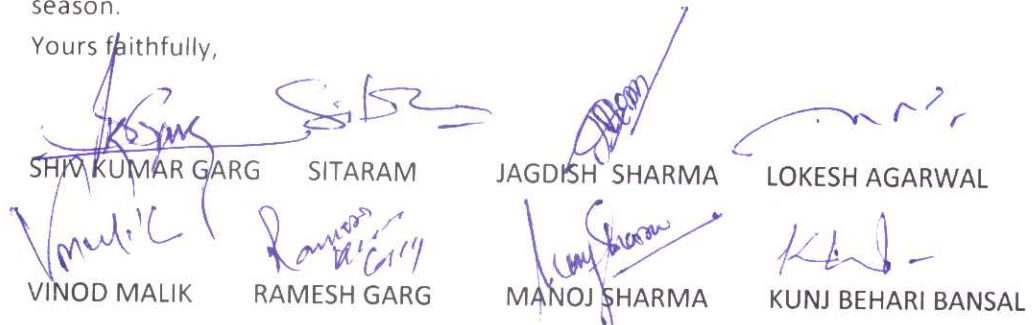 season.
Yours faithfully,
SHIV KUMAR GARG SITARAM JAGDISH SHARMA LOKESH AGARWAL
VINOD MALIK RAMESH GARG MANOJ SHARMA KUNJ BEHARI BANSAL